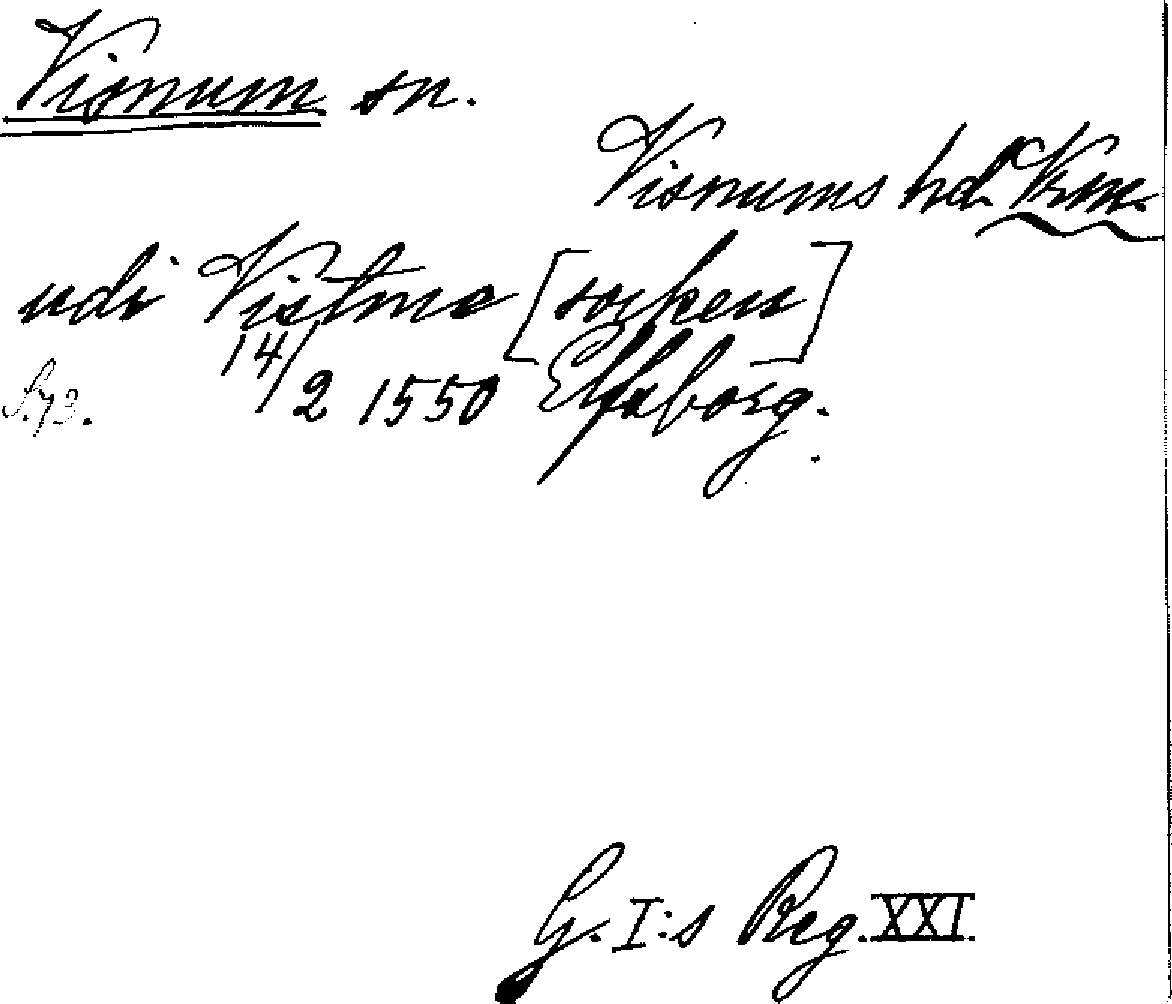 Visnum sn.
Visnums hd. Vrm.
udi Vistma [socken]
S. 73. 14/2 1550 Elfsborg.
G. I:s Reg. XXI.